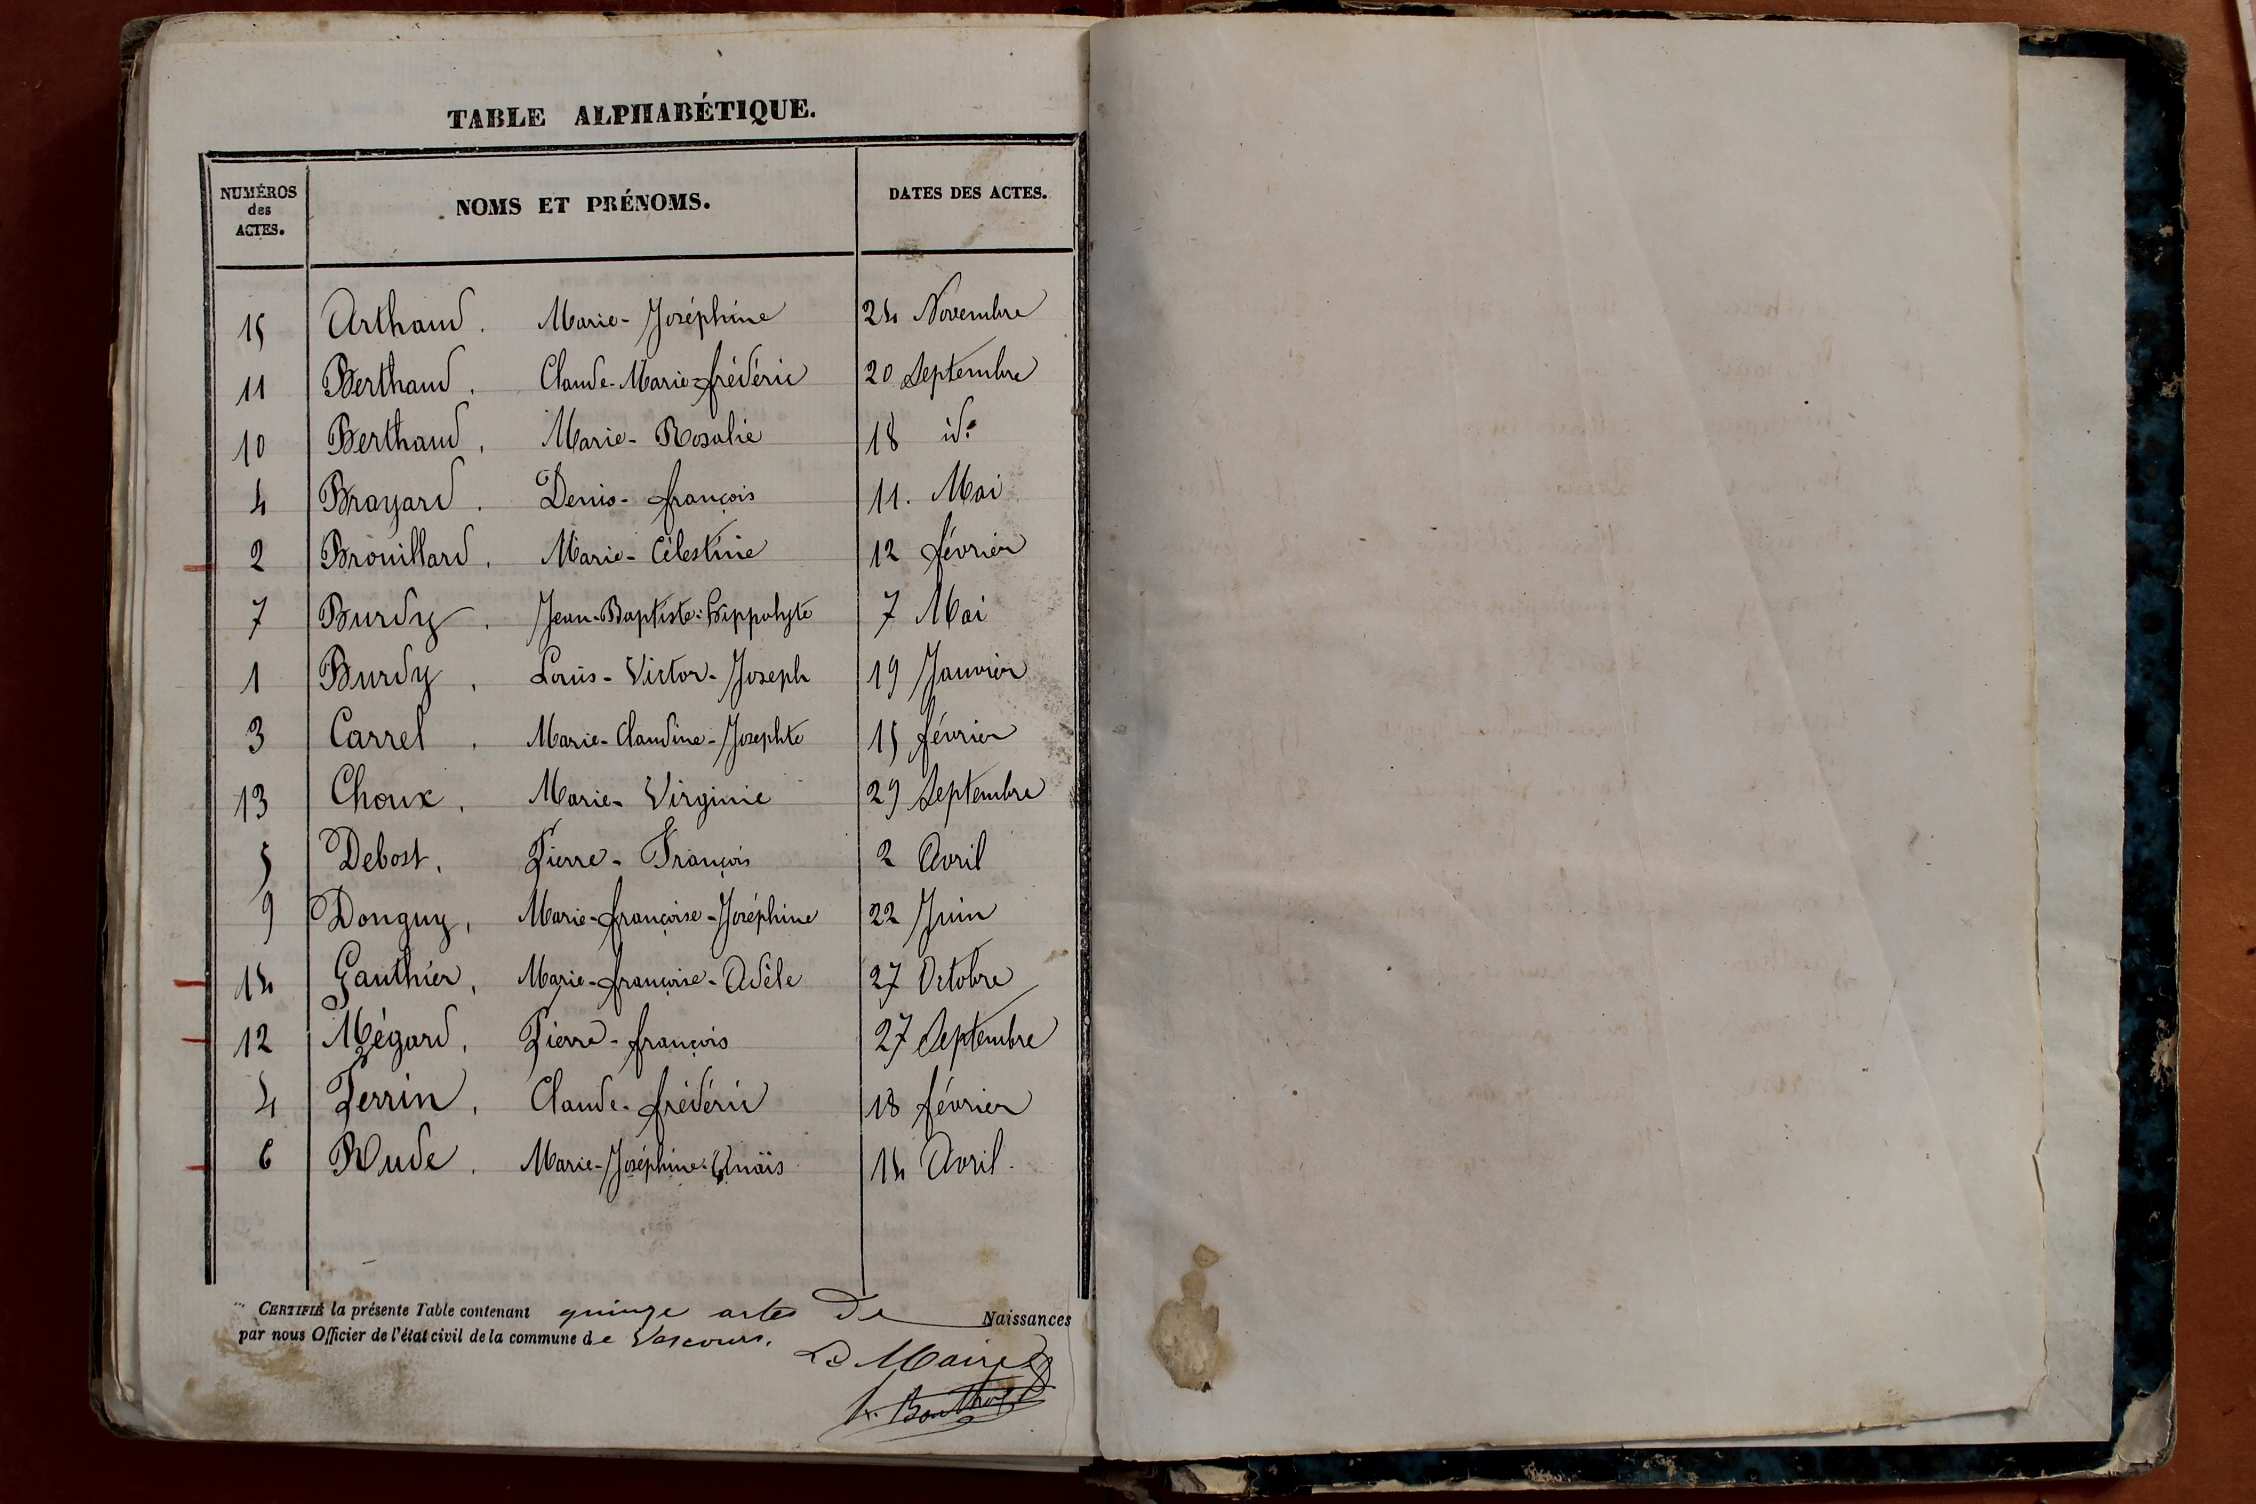 TABLE ALPHABÉTIQUE.
NUMÉROS des ACTES. NOMS ET PRÉNOMS. DATES DES ACTES.
15 Arthaud. Marie-Joséphine 24 Novembre
11 Berthaud, Claude-Marie-frédéric 20 Septembre
10 Berthaud, Marie-Rosalie 18 id.
4 Brayard. Denis-françois 11. Mai
2 Brouillard, Marie-Célestine 12 février
7 Burdy, Jean-Baptiste-hippolyte 7 Mai
1 Burdy, Louis-Victor-Joseph 19 Janvier
3 Carrel, Marie-Claudine-Josephte 15 février
13 Choux, Marie-Virginie 29 Septembre
5 Debost, Pierre-François 2 Avril
9 Donguy, Marie-françoise-Joséphine 22 Juin
14 Gauthier, Marie-françoise-Adèle 27 Octobre
12 Mégard, Pierre-françois 27 Septembre
4 Perrin, Claude-frédéric 18 février
6 Rude, Marie-Joséphine-Anaïs 14 Avril.
CERTIFIÉ la présente Table contenant quinze actes De Naissances
par nous Officier de l'état civil de la commune de
Le Maire